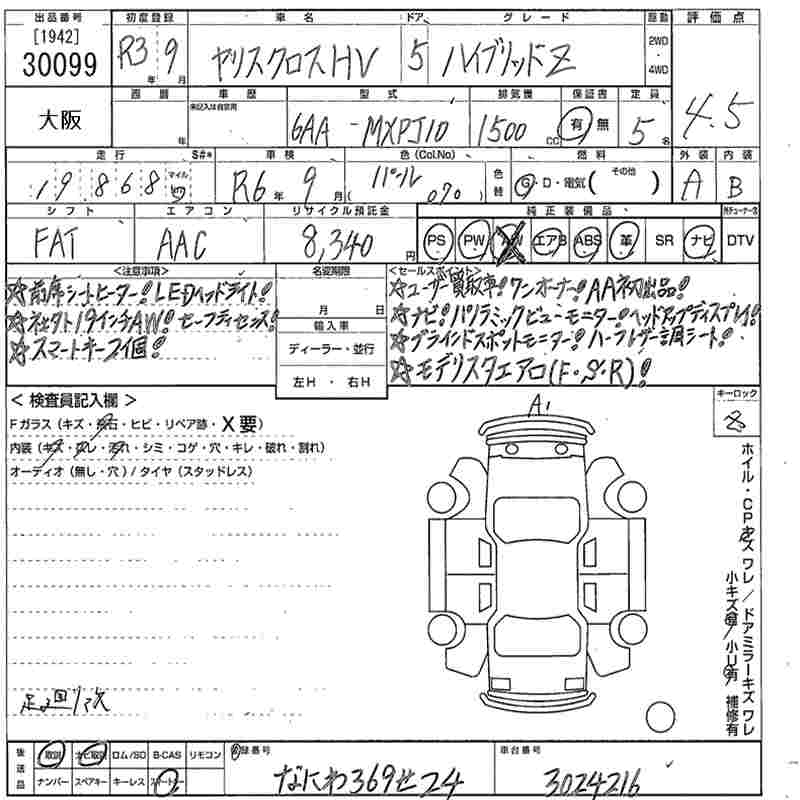 出品番号 初度登録 車名 ドア グレード 駆動 評価点
[1942] 30099 R3年 9月 ヤリスクロスHV 5 ハイブリッドZ 2WD・4WD 4.5
大阪 西暦 年 車歴 未記入は自家用 型式 6AA-MXPJ10 排気機 1500cc 保証書 有 無 定員 5名
走行 S#* 車検 色(Col.No) 色替 燃料 外装 内装
19868 マイル km R6年 9月 パール (070) G・D・電気( その他 ) A B
シフト エアコン リサイクル預託金 純正装備品
FAT AAC 8,340円 PS PW AW エアB ABS 革 SR ナビ DTV
<注意事項>
☆前席シートヒーター! LEDヘッドライト!
☆ネッツ 19インチAW! セーフティセンス!
☆スマートキー2個!
名変期限
月 日
輸入車
ディーラー・並行
左H・右H
<セールスポイント>
☆ユーザー買取車! ワンオーナー! AA初出品!
☆ナビ! パノラミックビューモニター! ヘッドアップディスプレイ!
☆ブラインドスポットモニター! ハーフレザー調シート!
☆モデリスタエアロ(F・S・R)!
<検査員記入欄>
Fガラス(キズ・飛石・ヒビ・リペア跡・X要)
内装(キズ・スレ・汚れ・シミ・コゲ・穴・キレ・破れ・割れ)
オーディオ(無し・穴)/タイヤ(スタッドレス)
A1
キーロック
ホイル・CPキズ ワレ/ドアミラーキズ ワレ
小キズ有/小U有 補修有
後送品 取説 ナビ取説 ロム/SD B-CAS リモコン
ナンバー スペアキー キーレス スマートキー
登録番号 なにわ369せ24
車台番号 3024216